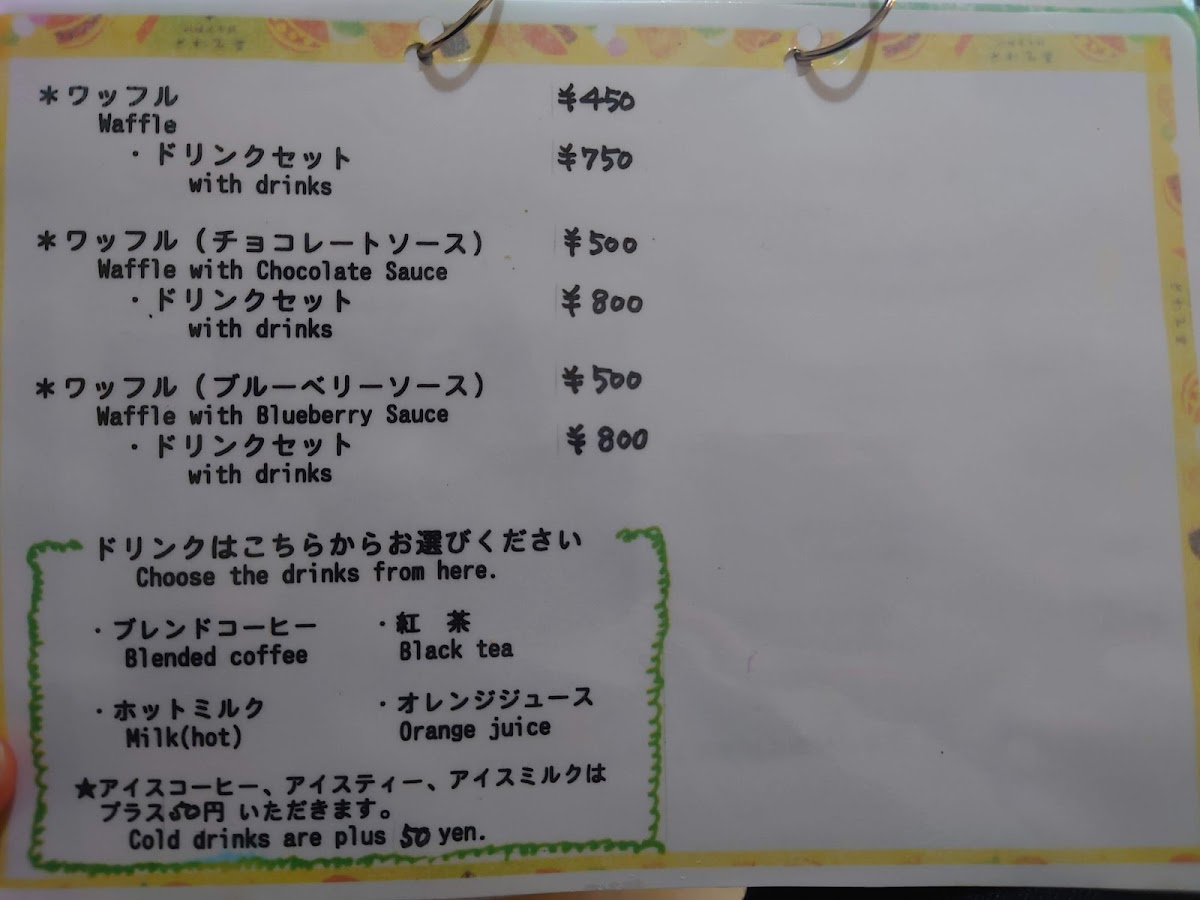 ＊ワッフル ¥450
Waffle
・ドリンクセット ¥750
with drinks
＊ワッフル（チョコレートソース） ¥500
Waffle with Chocolate Sauce
・ドリンクセット ¥800
with drinks
＊ワッフル（ブルーベリーソース） ¥500
Waffle with Blueberry Sauce
・ドリンクセット ¥800
with drinks
ドリンクはこちらからお選びください
Choose the drinks from here.
・ブレンドコーヒー ・紅　茶
Blended coffee Black tea
・ホットミルク ・オレンジジュース
Milk(hot) Orange juice
★アイスコーヒー、アイスティー、アイスミルクは
プラス50円 いただきます。
Cold drinks are plus 50 yen.